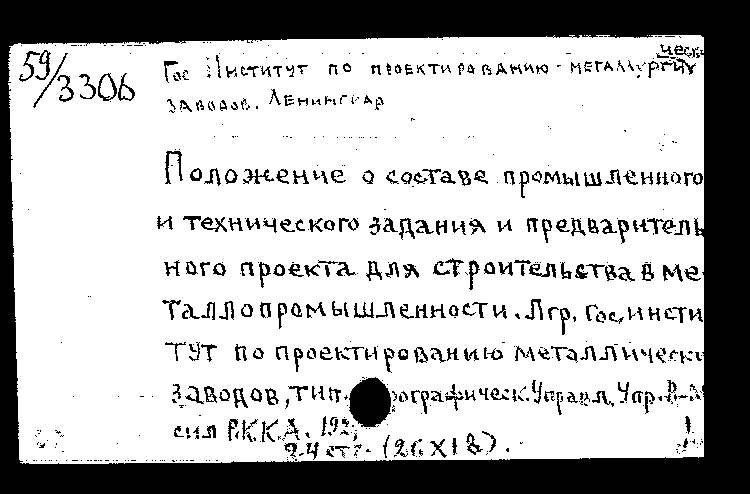 59/3306
Гос Институт по проектированию металлургич
ческ
заводов. Ленинград
Положение о составе промышленного
и технического задания и предваритель
ного проекта для строительства в ме
таллопромышленности. Лгр, Гос, инсти
тут по проектированию металлически
заводов, тип. рографическ. Управл, Упр. В-М
сил Р.К.К.А. 192
24 стр. (26X18).